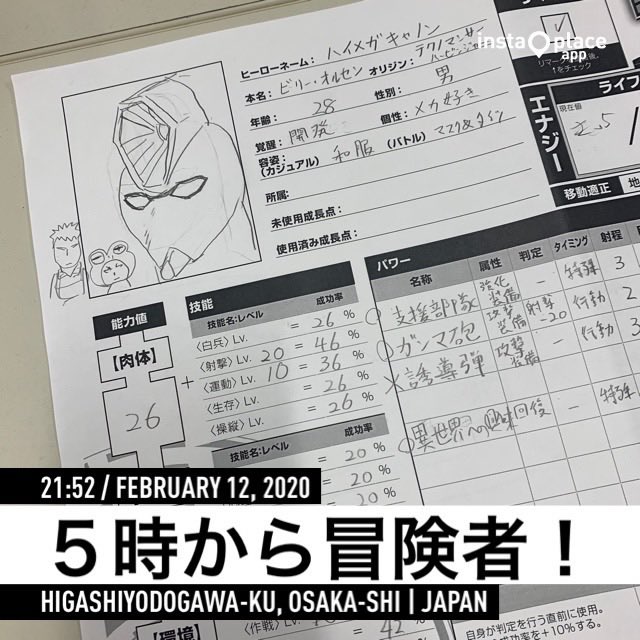 insta place
app
ヒーローネーム： ハイメガキャノン
本名： ビリー・オルセン オリジン： テクノマンサー
年齢： 28 性別： 男
覚醒： 開発 個性： メカ好き
容姿：
(カジュアル) 和服 (バトル) マスク&タイツ
所属：
未使用成長点：
使用済み成長点：
リマー
↑をチェック
エナジー
ライフ
現在値
移動適正 地
能力値
【肉体】
26
+
技能
技能名:レベル 成功率
〈白兵〉Lv. = 26 %
〈射撃〉Lv. 20 = 46 %
〈運動〉Lv. 10 = 36 %
〈生存〉Lv. = 26 %
〈操縦〉Lv. = 26 %
技能名:レベル 成功率
= 20 %
= 20 %
= 20 %
パワー
名称 属性 判定 タイミング 射程
支援部隊 強化 装備 − 特殊 3
ガンマ砲 攻撃 装備 射撃 -20 行動 2
誘導弾 攻撃 装備 − 行動 3
異世界への − 特殊
21:52 / FEBRUARY 12, 2020
５時から冒険者！
HIGASHIYODOGAWA-KU, OSAKA-SHI | JAPAN
【環境】
〈作戦〉Lv. = 42 %
自身が判定を行う直前に使用。
成功率を+10%する。